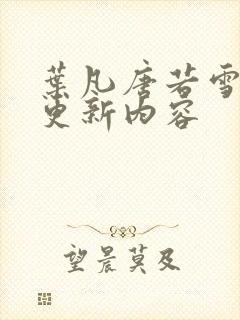 葉凡唐若雪
更新内容
望晨莫及